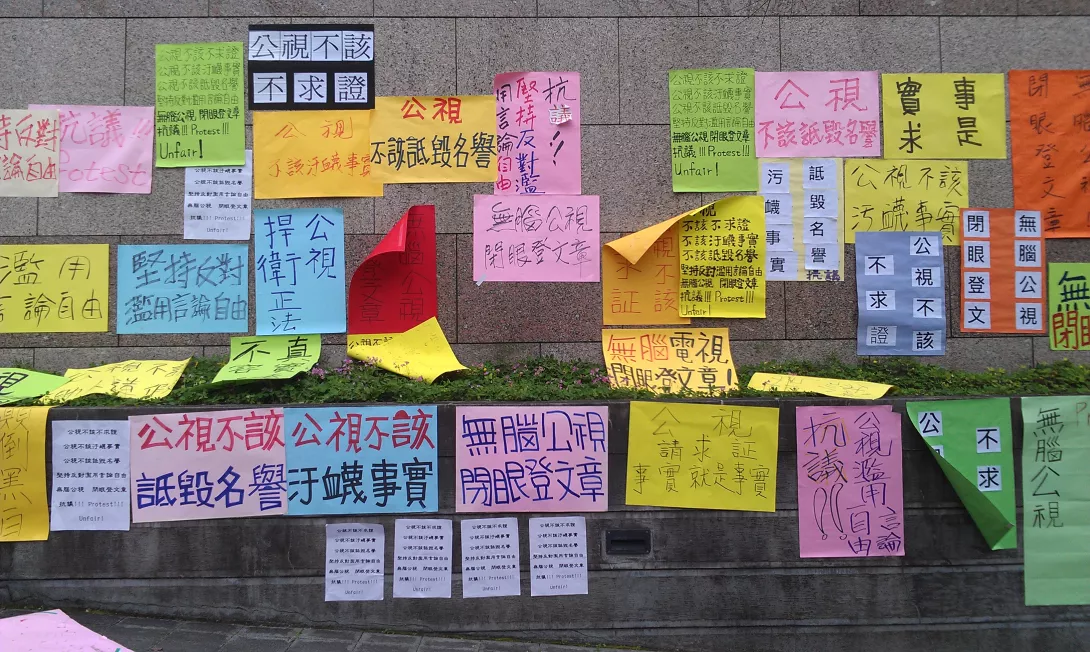 公視不該不求證
公視不該汙衊事實
公視不該詆毀名譽
堅持反對濫用言論自由
無腦公視 閉眼登文章
抗議!!! Protest!!!
Unfair!
公視不該
不求證
持反對
論自由
抗議!!
Protest
公視
不該汙衊事實
公視
不該詆毀名譽
抗議!!
堅持反對濫
用言論自由
公視不該不求證
公視不該汙衊事實
公視不該詆毀名譽
堅持反對濫用言論自由
無腦公視 閉眼登文章
抗議!!! Protest!!!
Unfair!
公視
不該詆毀名譽
事是
實求
無腦
閉眼登文章
公視不該不求證
公視不該汙衊事實
公視不該詆毀名譽
堅持反對濫用言論自由
無腦公視 閉眼登文章
抗議!!! Protest!!!
Unfair!
濫用
言論自由
堅持反對
濫用言論自由
公視
捍衛正法
無腦公視
登文章
無腦公視
閉眼登文章
不該
不証
不該不求證
不該汙衊事實
不該詆毀名譽
堅持反對濫用言論自由
無腦公視 閉眼登文章
抗議!!! Protest!!!
Unfair!
詆毀名譽
污衊事實
抗議
公視不該
污衊事實
公視不該
不求證
無腦公視
閉眼登文
無
閉
不真
無腦電視
閉眼登文章!
倒黑白
公視不該不求證
公視不該汙衊事實
公視不該詆毀名譽
堅持反對濫用言論自由
無腦公視 閉眼登文章
抗議!!! Protest!!!
Unfair!
公視不該
詆毀名譽
公視不該
汙衊事實
無腦公視
閉眼登文章
公視
請求証
事實就是事實
公視濫用言論
自由
抗議!!
公
不求
無腦公視
公視不該不求證
公視不該汙衊事實
公視不該詆毀名譽
堅持反對濫用言論自由
無腦公視 閉眼登文章
抗議!!! Protest!!!
Unfair!
公視不該不求證
公視不該汙衊事實
公視不該詆毀名譽
堅持反對濫用言論自由
無腦公視 閉眼登文章
抗議!!! Protest!!!
Unfair!
公視不該不求證
公視不該汙衊事實
公視不該詆毀名譽
堅持反對濫用言論自由
無腦公視 閉眼登文章
抗議!!! Protest!!!
Unfair!
公視不該不求證
公視不該汙衊事實
公視不該詆毀名譽
堅持反對濫用言論自由
無腦公視 閉眼登文章
抗議!!! Protest!!!
Unfair!